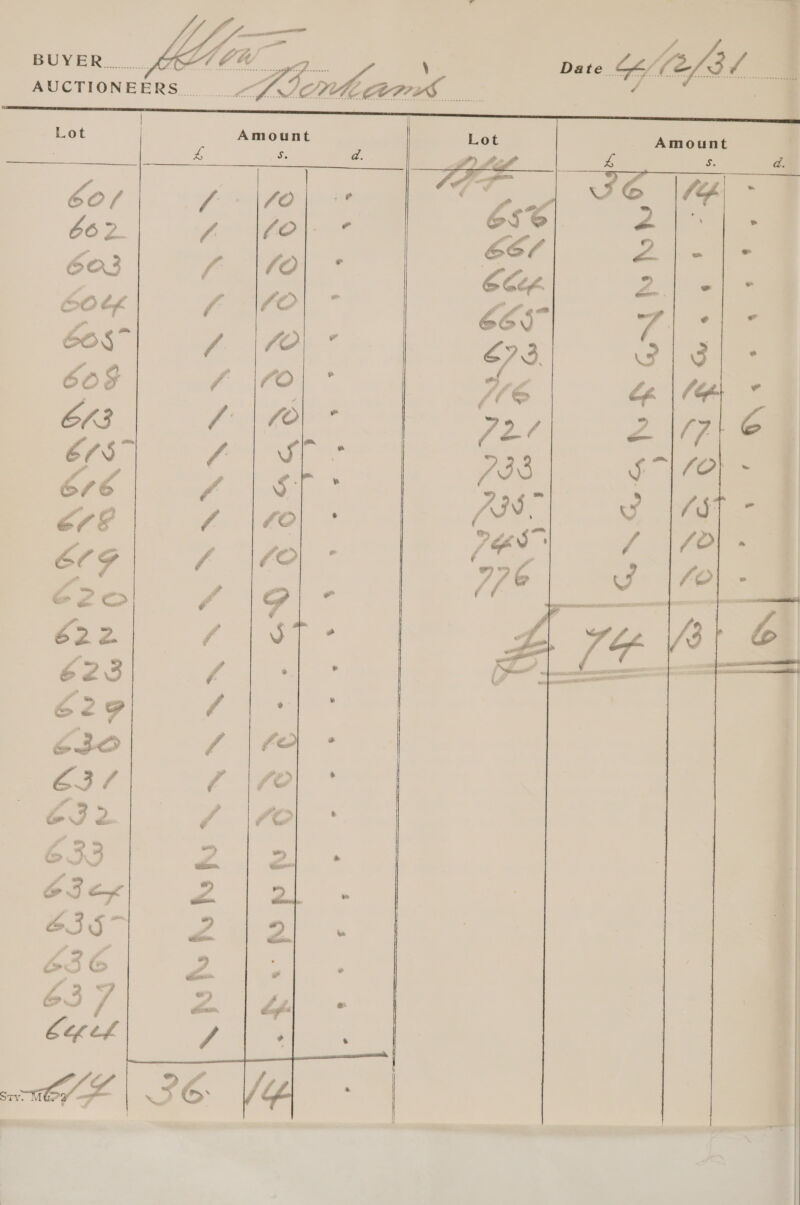 BUYER
AUCTIONEERS Bonhams
Date 4/12/31
Lot Amount
£ s. d.
601 1 10 -
602 1 10 -
603 1 10 -
604 1 10 -
605 1 10 -
608 1 10 -
613 1 10 -
615 1 5 -
616 1 5 -
618 1 10 -
619 1 10 -
620 1 9 -
622 1 5 -
623 1 - -
629 1 - -
630 1 10 -
631 1 10 -
632 1 10 -
633 2 2 -
634 2 2 -
635 2 2 -
636 2 - -
637 2 4 -
644 1 - -
C/F 36 14 -
Lot Amount
£ s. d.
B/F 36 14 -
656 2 - -
661 2 - -
664 2 - -
665 7 - -
673 3 3 -
716 4 14 -
721 2 17 6
733 5 10 -
735 3 15 -
745 1 10 -
776 3 10 -
£ 74 13 6